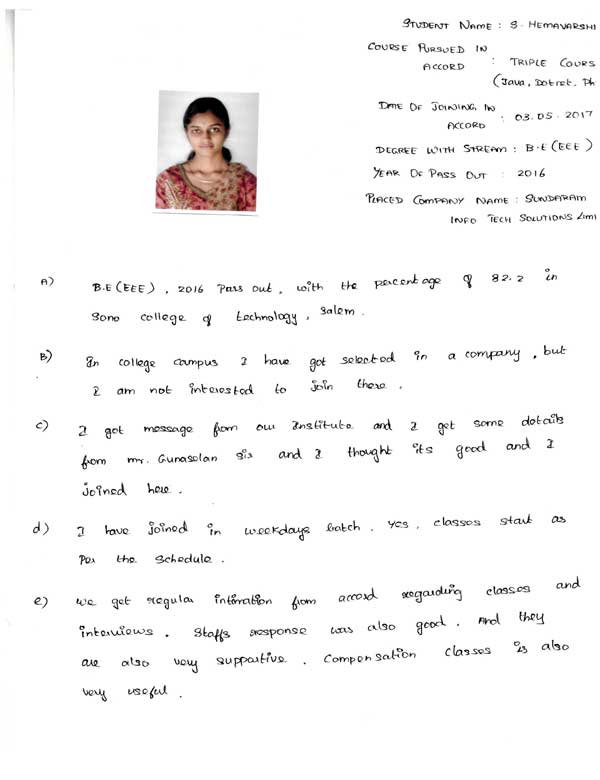 STUDENT NAME : S. HEMAVARSHI
COURSE PURSUED IN
ACCORD : TRIPLE COURS
(Java, Dotnet, Ph
DATE OF JOINING IN
ACCORD : 03.05.2017
DEGREE WITH STREAM : B.E (EEE)
YEAR OF PASS OUT : 2016
PLACED COMPANY NAME : SUNDARAM
INFO TECH SOLUTIONS LIMI
A) B.E (EEE), 2016 Pass out, with the percentage of 82.2 in
Sona college of technology, Salem.
B) In college campus I have got selected in a company, but
I am not interested to join there.
c) I got message from our Institute and I get some details
from mr. Gunaselan sir and I thought its good and I
joined here.
d) I have joined in weekdays batch. Yes, classes start as
per the schedule.
e) we get regular intimation from accord regarding classes and
interviews. Staffs response was also good. And they
are also very supportive. Compensation classes is also
very useful.